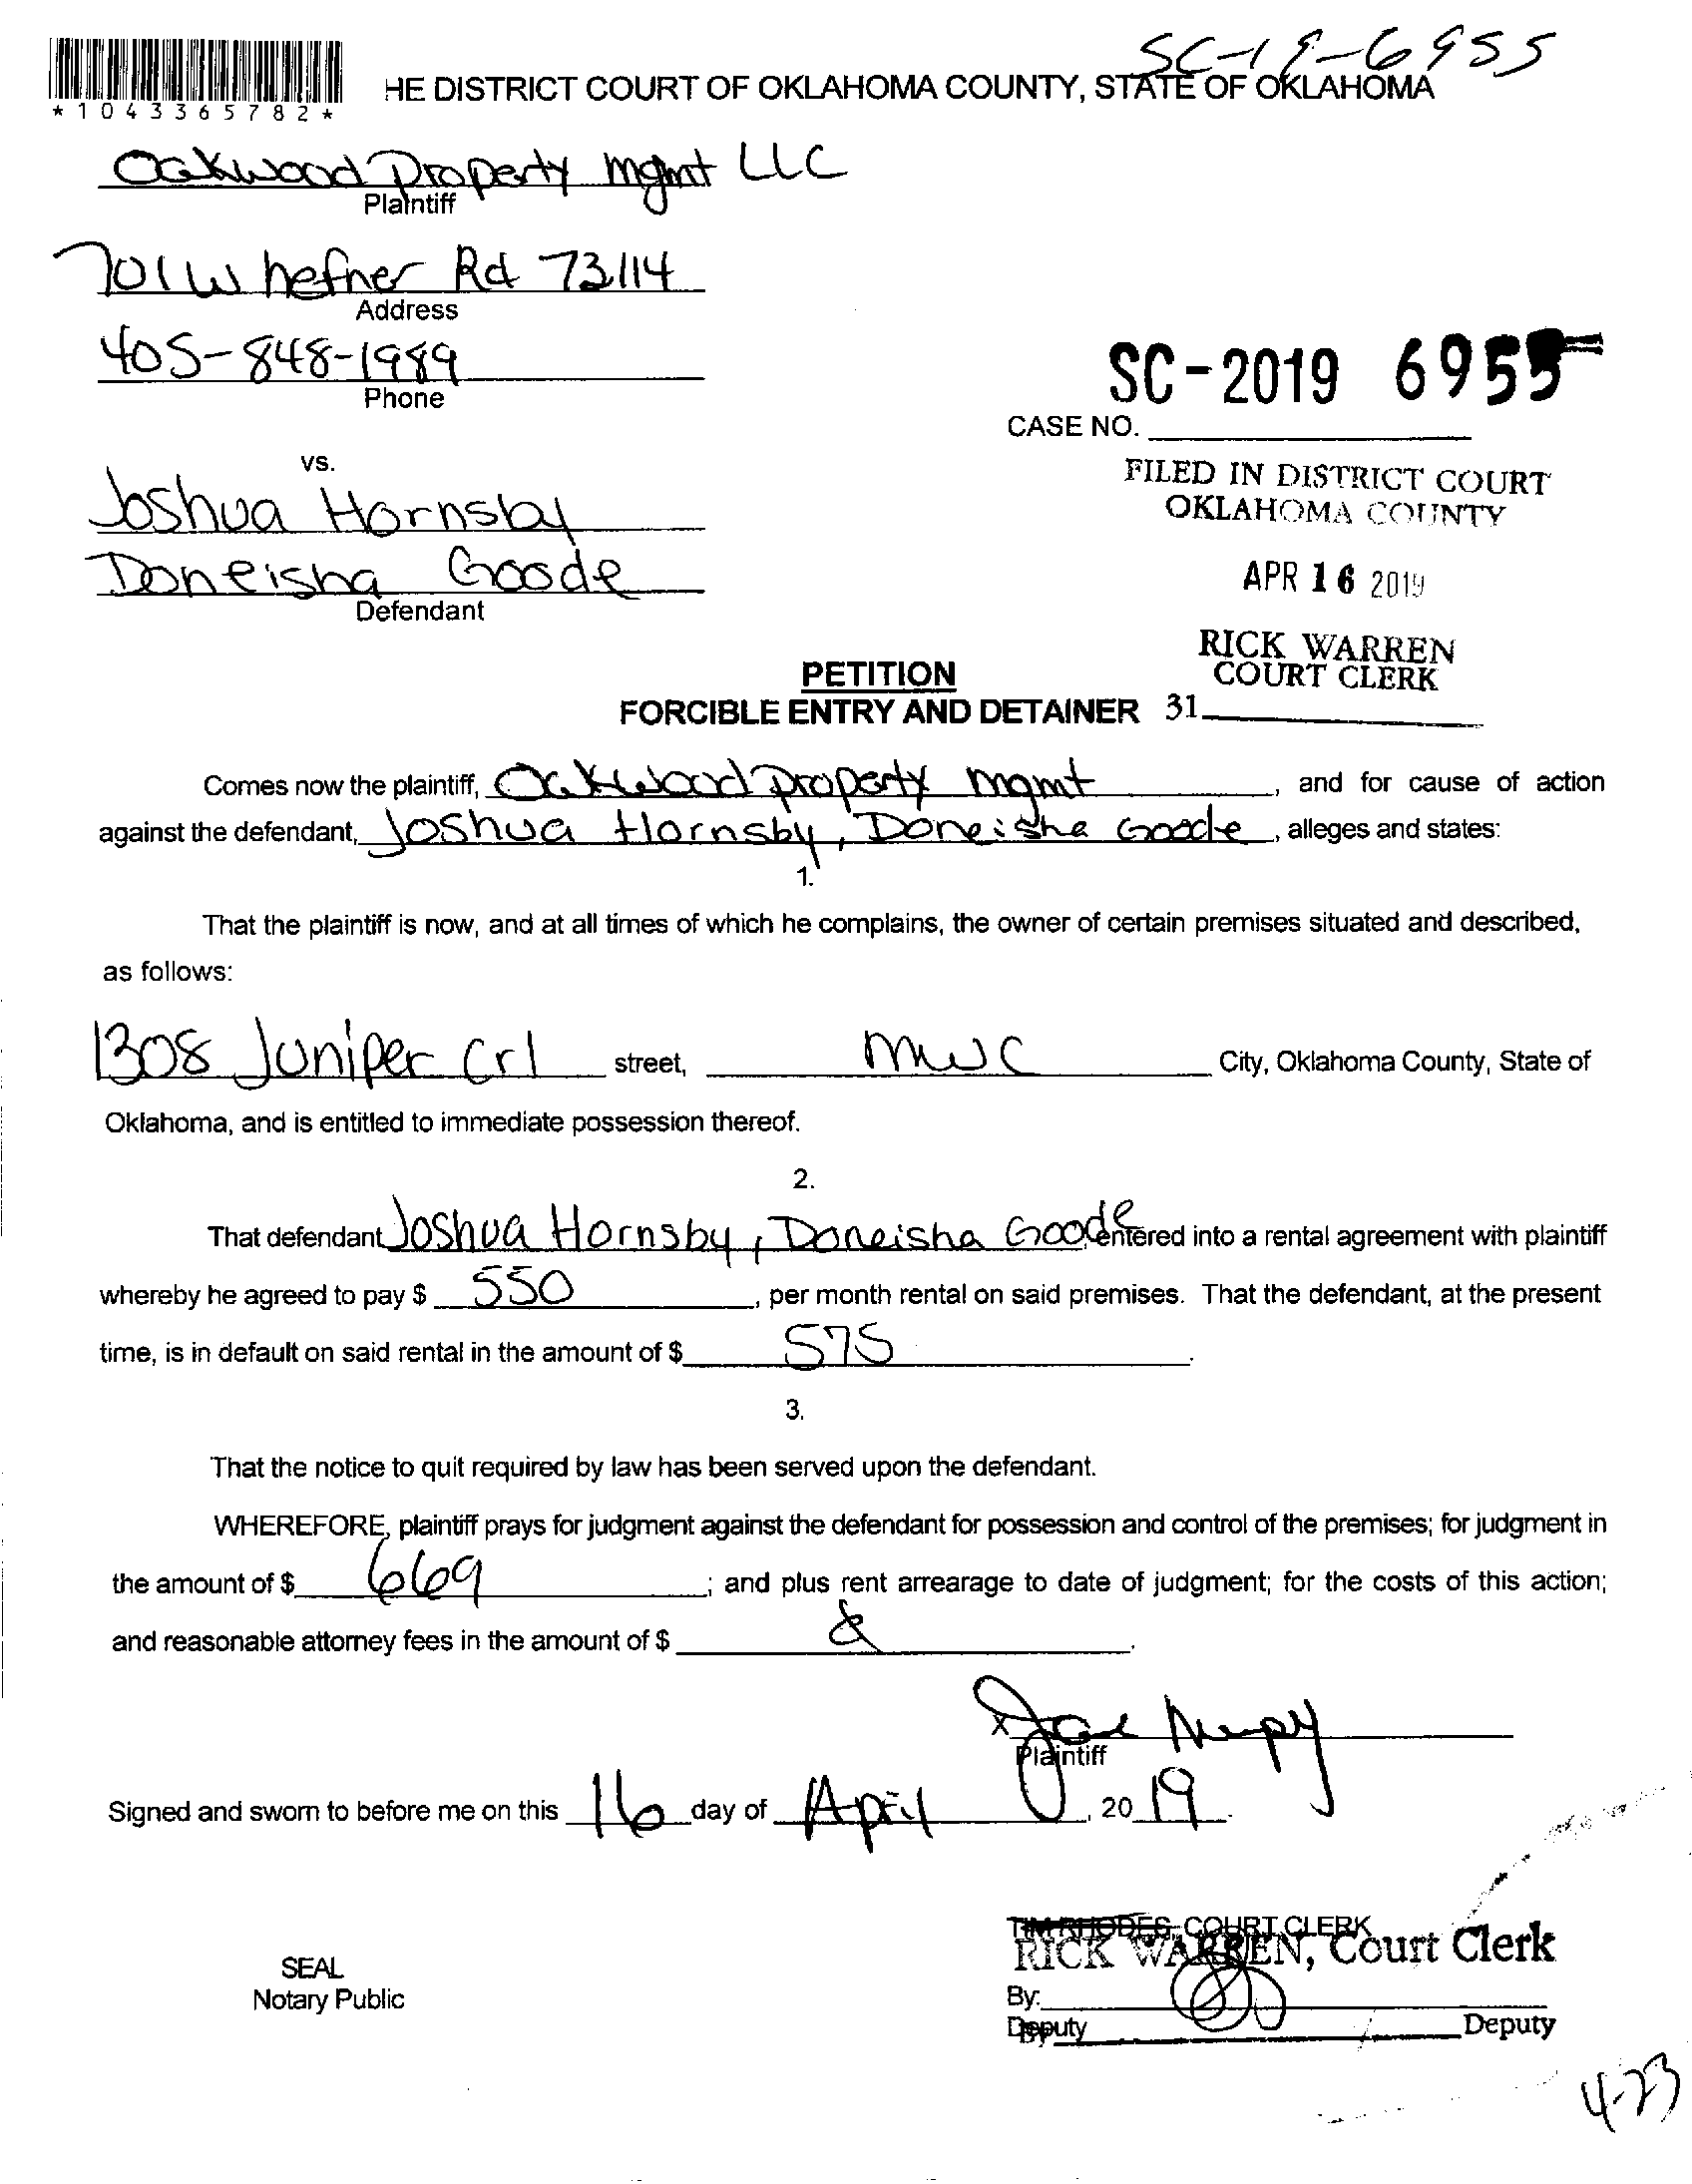 SC-19-6955
HE DISTRICT COURT OF OKLAHOMA COUNTY, STATE OF OKLAHOMA
*1043365782*
Oakwood Property Mgmt LLC
Plaintiff
701 W hefner Rd 73114
Address
405-848-1989
Phone
SC-2019 6955
CASE NO.
vs.
FILED IN DISTRICT COURT
OKLAHOMA COUNTY
Joshua Hornsby
Doneisha Goode
Defendant
APR 16 2019
RICK WARREN
COURT CLERK
31
PETITION
FORCIBLE ENTRY AND DETAINER
Comes now the plaintiff, Oakwood Property Mgmt, and for cause of action
against the defendant, Joshua Hornsby, Doneisha Goode, alleges and states:
1.
That the plaintiff is now, and at all times of which he complains, the owner of certain premises situated and described,
as follows:
1308 Juniper Crl street, MWC City, Oklahoma County, State of
Oklahoma, and is entitled to immediate possession thereof.
2.
That defendant Joshua Hornsby, Doneisha Goode entered into a rental agreement with plaintiff
whereby he agreed to pay $ 550, per month rental on said premises. That the defendant, at the present
time, is in default on said rental in the amount of $ 575.
3.
That the notice to quit required by law has been served upon the defendant.
WHEREFORE, plaintiff prays for judgment against the defendant for possession and control of the premises; for judgment in
the amount of $ 669; and plus rent arrearage to date of judgment; for the costs of this action;
and reasonable attorney fees in the amount of $ .
X
Plaintiff
Signed and sworn to before me on this 16 day of April, 20 19.
TIM RHODES, COURT CLERK
RICK WARREN, Court Clerk
SEAL
Notary Public
By:
Deputy
By Deputy
4-23